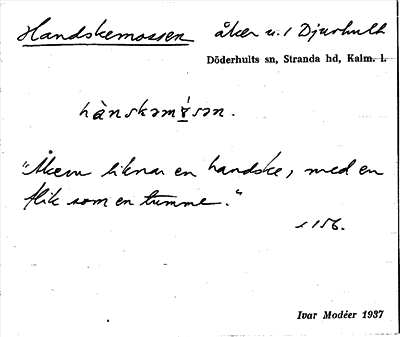 Handskemossen åker u. / Djurhult
Döderhults sn, Stranda hd, Kalm. l.
hànskəmɤ̀sən.
"Åkern liknar en handske, med en
flik som en tumme."
s 156.
Ivar Modéer 1937